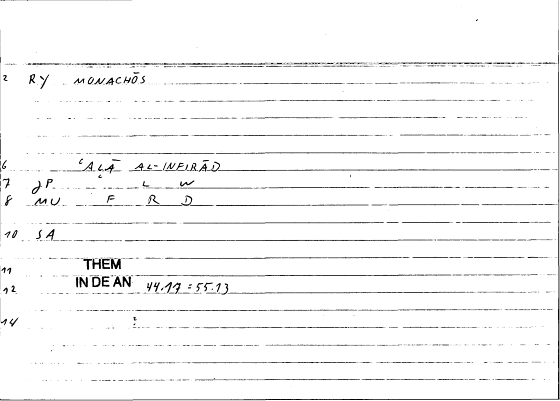 2 RY MONACHŌS
6 ʿALĀ AL-INFIRĀD
7 JP L W
8 MU F R D
10 SA
11 THEM
12 IN DE AN 44.17 = 55.13
14 :